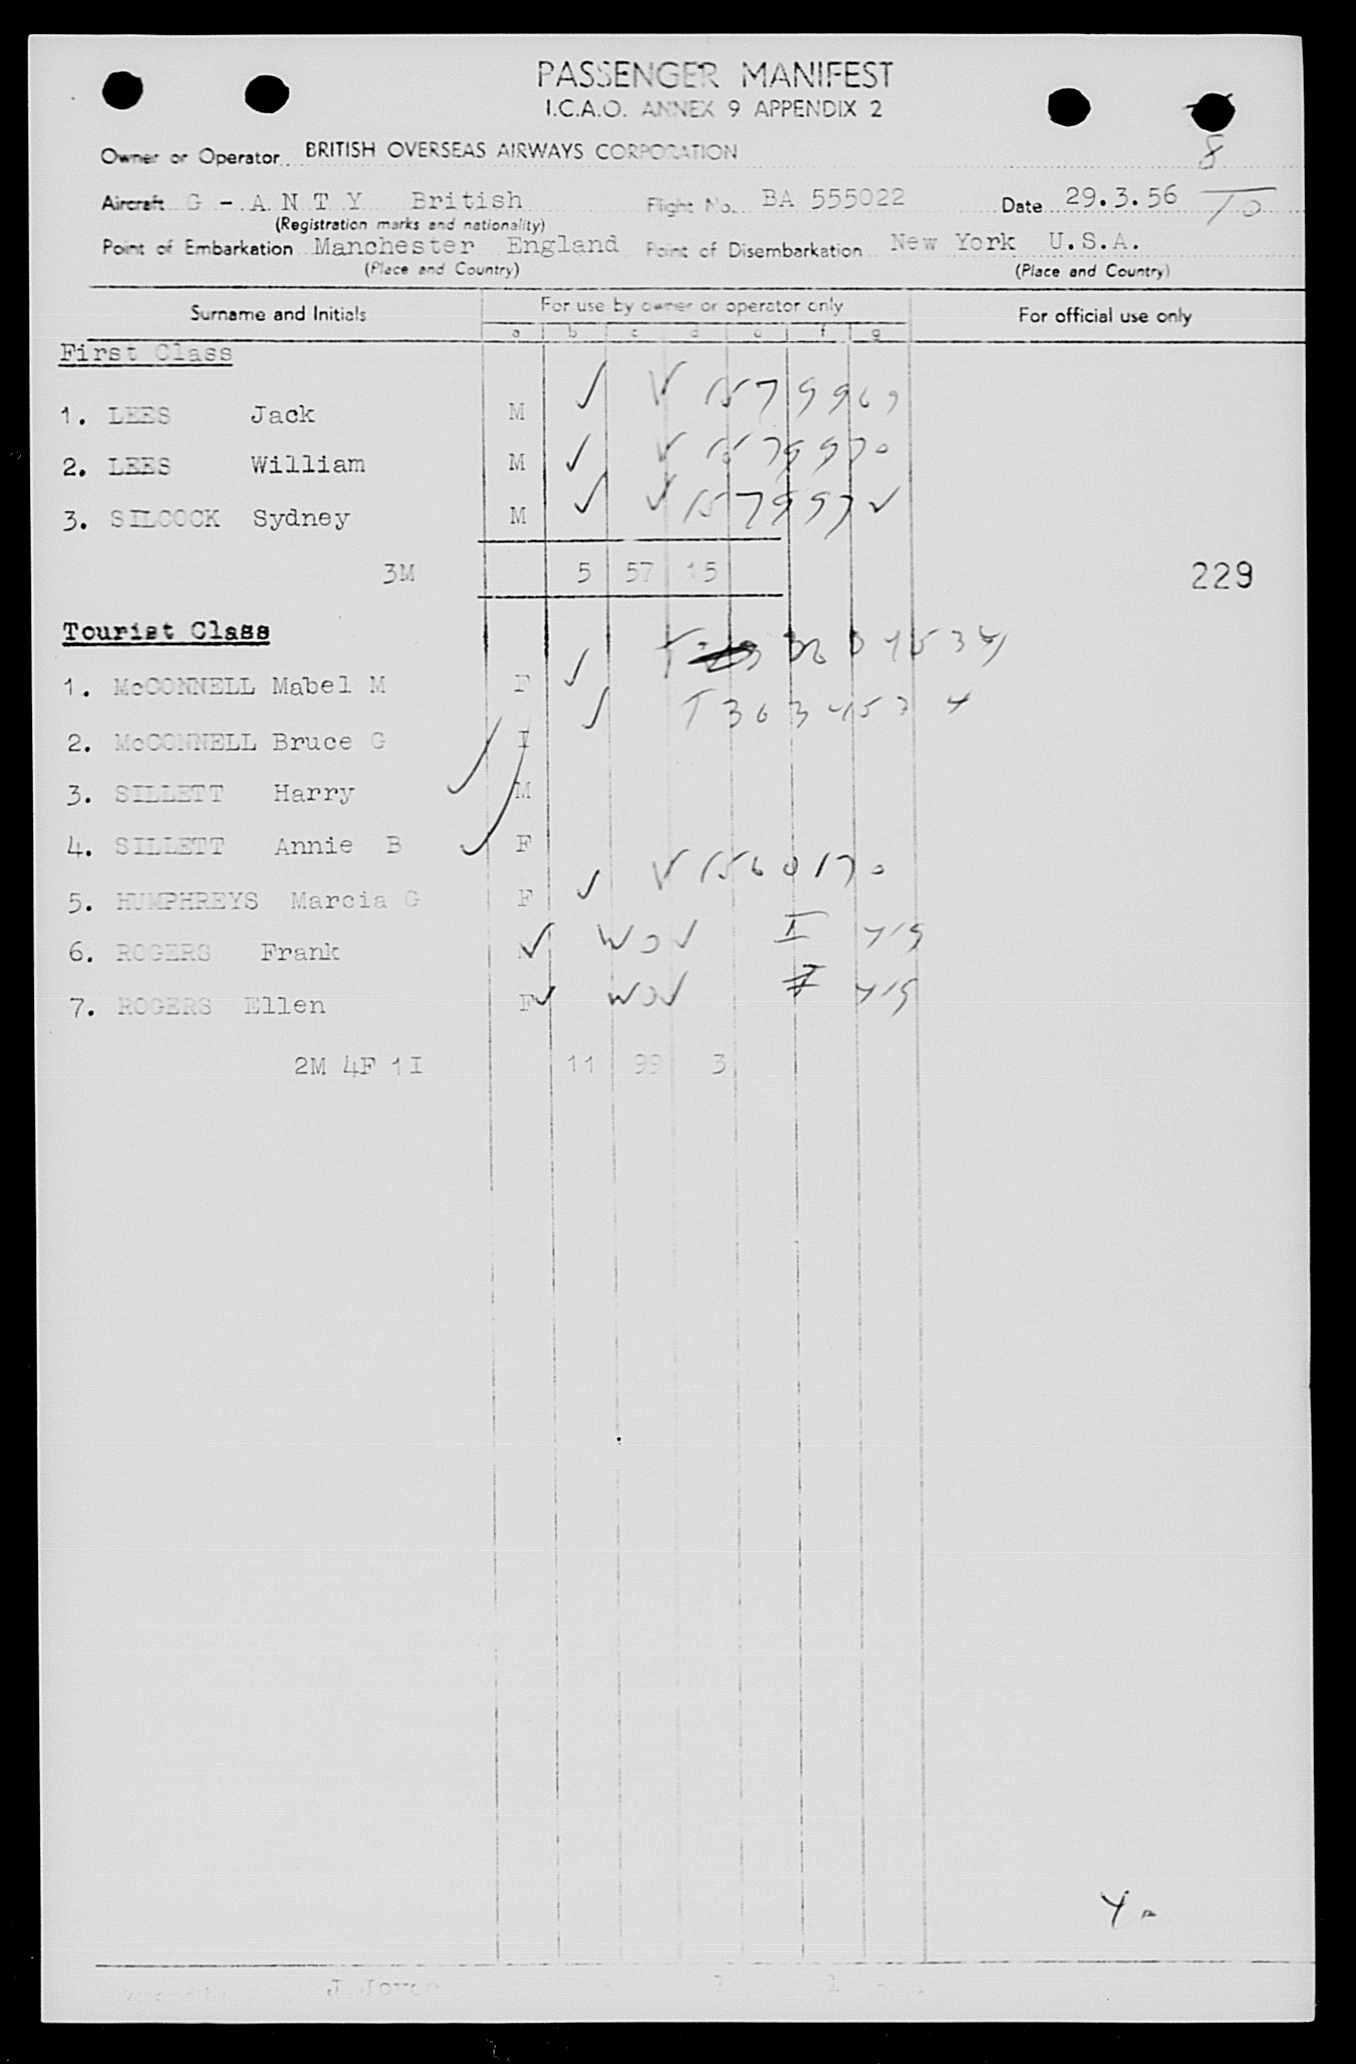 PASSENGER MANIFEST
I.C.A.O. ANNEX 9 APPENDIX 2
8
Owner or Operator BRITISH OVERSEAS AIRWAYS CORPORATION
Aircraft G - A N T Y British Flight No. BA 555022 Date 29.3.56
(Registration marks and nationality)
Point of Embarkation Manchester England Point of Disembarkation New York U.S.A.
(Place and Country) (Place and Country)
Surname and Initials For use by owner or operator only For official use only
a b c d e f g
First Class
1. LEES Jack M ✓ ✓
2. LEES William M ✓ ✓
3. SILCOCK Sydney M ✓ ✓
3M 5 57 15 229
Tourist Class
1. McCONNELL Mabel M F ✓
2. McCONNELL Bruce G I ✓
3. SILLETT Harry ✓ M
4. SILLETT Annie B ✓ F
5. HUMPHREYS Marcia G F ✓
6. ROGERS Frank ✓
7. ROGERS Ellen F ✓
2M 4F 1I 11 99 3